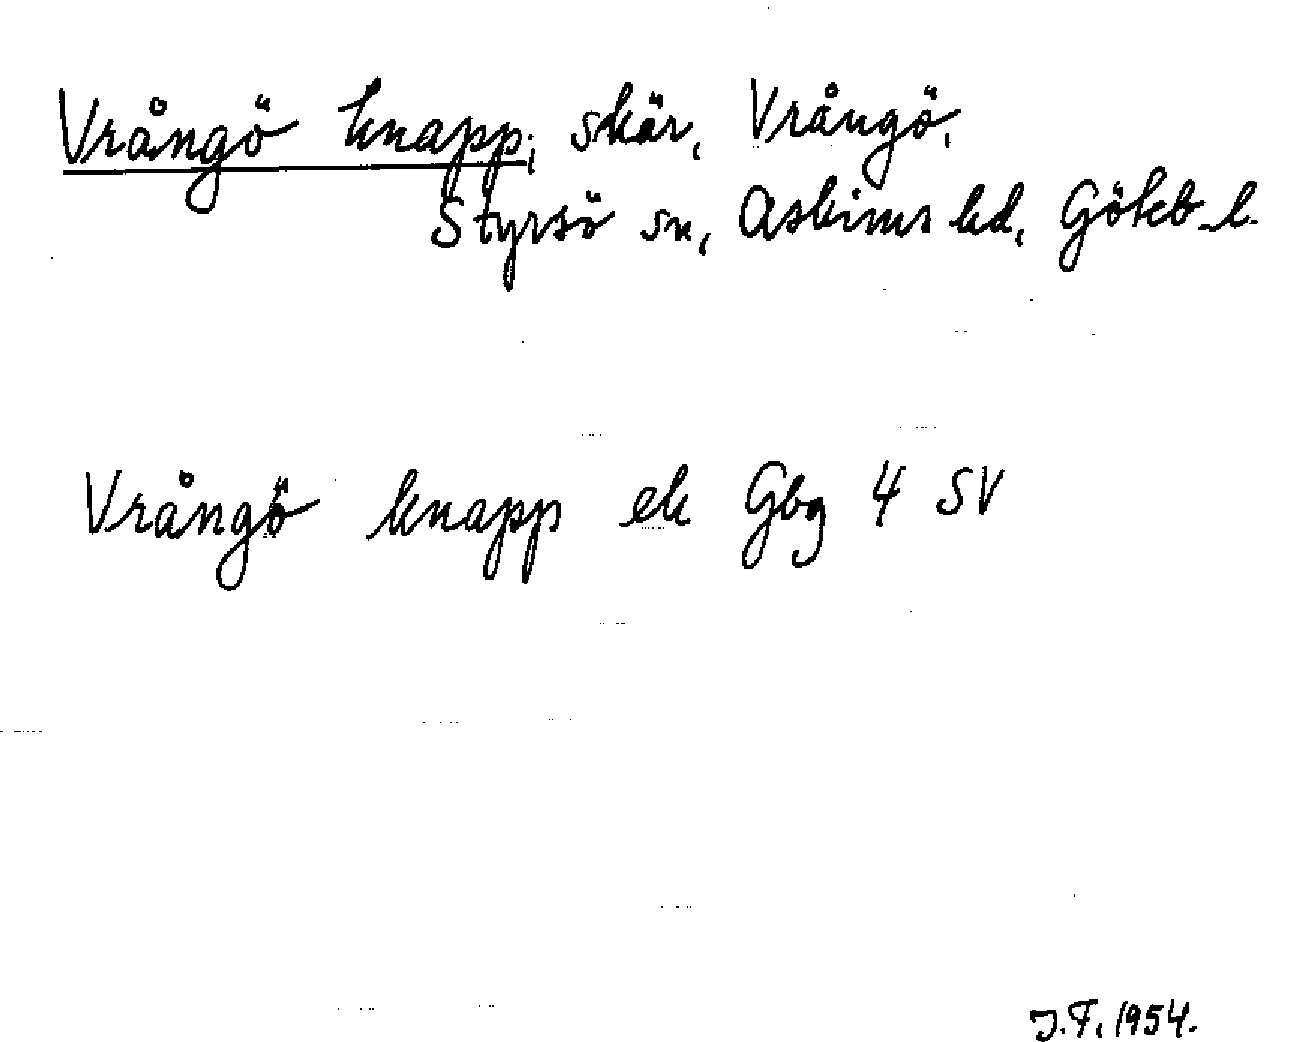 Vrångö knapp, skär, Vrångö,
Styrsö sn, Askims hd, Göteb. l.
Vrångö knapp ek Gbg 4 SV
J.F. 1954.